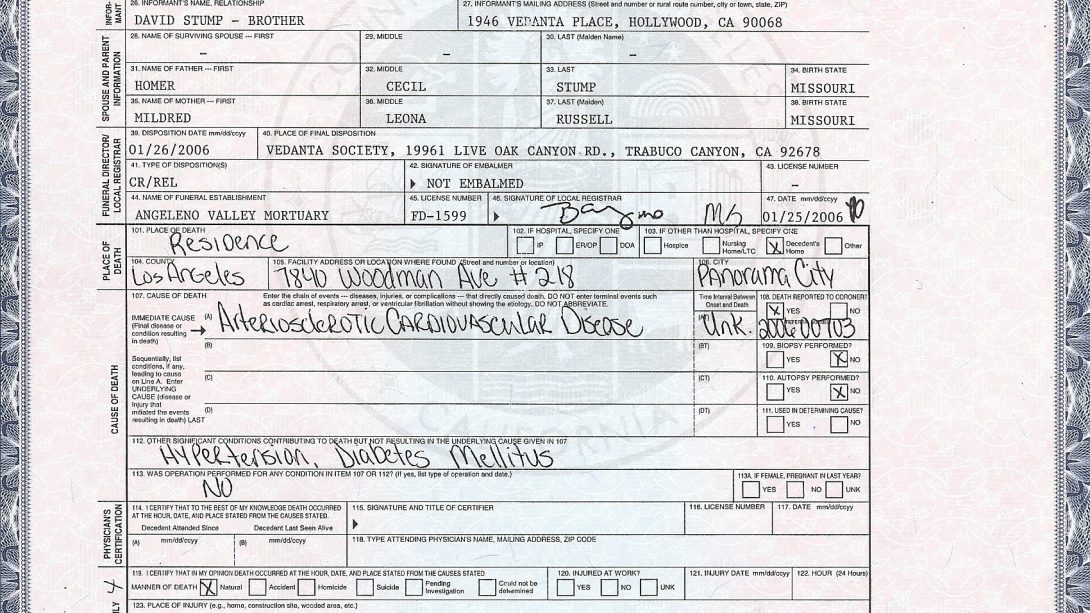 26. INFORMANT'S NAME, RELATIONSHIP
27. INFORMANT'S MAILING ADDRESS (Street and number or rural route number, city or town, state, ZIP)
INFOR-MANT
DAVID STUMP - BROTHER
1946 VEDANTA PLACE, HOLLYWOOD, CA 90068
SPOUSE AND PARENT INFORMATION
28. NAME OF SURVIVING SPOUSE --- FIRST
29. MIDDLE
30. LAST (Maiden Name)
– – –
31. NAME OF FATHER --- FIRST
32. MIDDLE
33. LAST
34. BIRTH STATE
HOMER CECIL STUMP MISSOURI
35. NAME OF MOTHER --- FIRST
36. MIDDLE
37. LAST (Maiden)
38. BIRTH STATE
MILDRED LEONA RUSSELL MISSOURI
FUNERAL DIRECTOR/ LOCAL REGISTRAR
39. DISPOSITION DATE mm/dd/ccyy
40. PLACE OF FINAL DISPOSITION
01/26/2006 VEDANTA SOCIETY, 19961 LIVE OAK CANYON RD., TRABUCO CANYON, CA 92678
41. TYPE OF DISPOSITION(S)
42. SIGNATURE OF EMBALMER
43. LICENSE NUMBER
CR/REL NOT EMBALMED –
44. NAME OF FUNERAL ESTABLISHMENT
45. LICENSE NUMBER
46. SIGNATURE OF LOCAL REGISTRAR
47. DATE mm/dd/ccyy
ANGELENO VALLEY MORTUARY FD-1599 01/25/2006
PLACE OF DEATH
101. PLACE OF DEATH
Residence
102. IF HOSPITAL, SPECIFY ONE
IP ER/OP DOA
103. IF OTHER THAN HOSPITAL, SPECIFY ONE
Hospice Nursing Home/LTC X Decedent's Home Other
104. COUNTY
105. FACILITY ADDRESS OR LOCATION WHERE FOUND (Street and number or location)
106. CITY
Los Angeles 7840 Woodman Ave #218 Panorama City
CAUSE OF DEATH
107. CAUSE OF DEATH
Enter the chain of events --- diseases, injuries, or complications --- that directly caused death. DO NOT enter terminal events such
as cardiac arrest, respiratory arrest, or ventricular fibrillation without showing the etiology. DO NOT ABBREVIATE.
Time Interval Between Onset and Death
108. DEATH REPORTED TO CORONER?
X YES NO
IMMEDIATE CAUSE (Final disease or condition resulting in death)
(A) Arteriosclerotic Cardiovascular Disease
(AT) Unk.
2006 00703
(B)
(BT)
109. BIOPSY PERFORMED?
YES X NO
Sequentially, list conditions, if any, leading to cause on Line A. Enter UNDERLYING CAUSE (disease or injury that initiated the events resulting in death) LAST
(C)
(CT)
110. AUTOPSY PERFORMED?
YES X NO
(D)
(DT)
111. USED IN DETERMINING CAUSE?
YES NO
112. OTHER SIGNIFICANT CONDITIONS CONTRIBUTING TO DEATH BUT NOT RESULTING IN THE UNDERLYING CAUSE GIVEN IN 107
Hypertension, Diabetes Mellitus
113. WAS OPERATION PERFORMED FOR ANY CONDITION IN ITEM 107 OR 112? (If yes, list type of operation and date.)
NO
113A. IF FEMALE, PREGNANT IN LAST YEAR?
YES NO UNK
PHYSICIAN'S CERTIFICATION
114. I CERTIFY THAT TO THE BEST OF MY KNOWLEDGE DEATH OCCURRED
AT THE HOUR, DATE, AND PLACE STATED FROM THE CAUSES STATED.
Decedent Attended Since Decedent Last Seen Alive
(A) mm/dd/ccyy (B) mm/dd/ccyy
115. SIGNATURE AND TITLE OF CERTIFIER
116. LICENSE NUMBER
117. DATE mm/dd/ccyy
118. TYPE ATTENDING PHYSICIAN'S NAME, MAILING ADDRESS, ZIP CODE
119. I CERTIFY THAT IN MY OPINION DEATH OCCURRED AT THE HOUR, DATE, AND PLACE STATED FROM THE CAUSES STATED.
MANNER OF DEATH X Natural Accident Homicide Suicide Pending Investigation Could not be determined
120. INJURED AT WORK?
YES NO UNK
121. INJURY DATE mm/dd/ccyy
122. HOUR (24 Hours)
123. PLACE OF INJURY (e.g., home, construction site, wooded area, etc.)